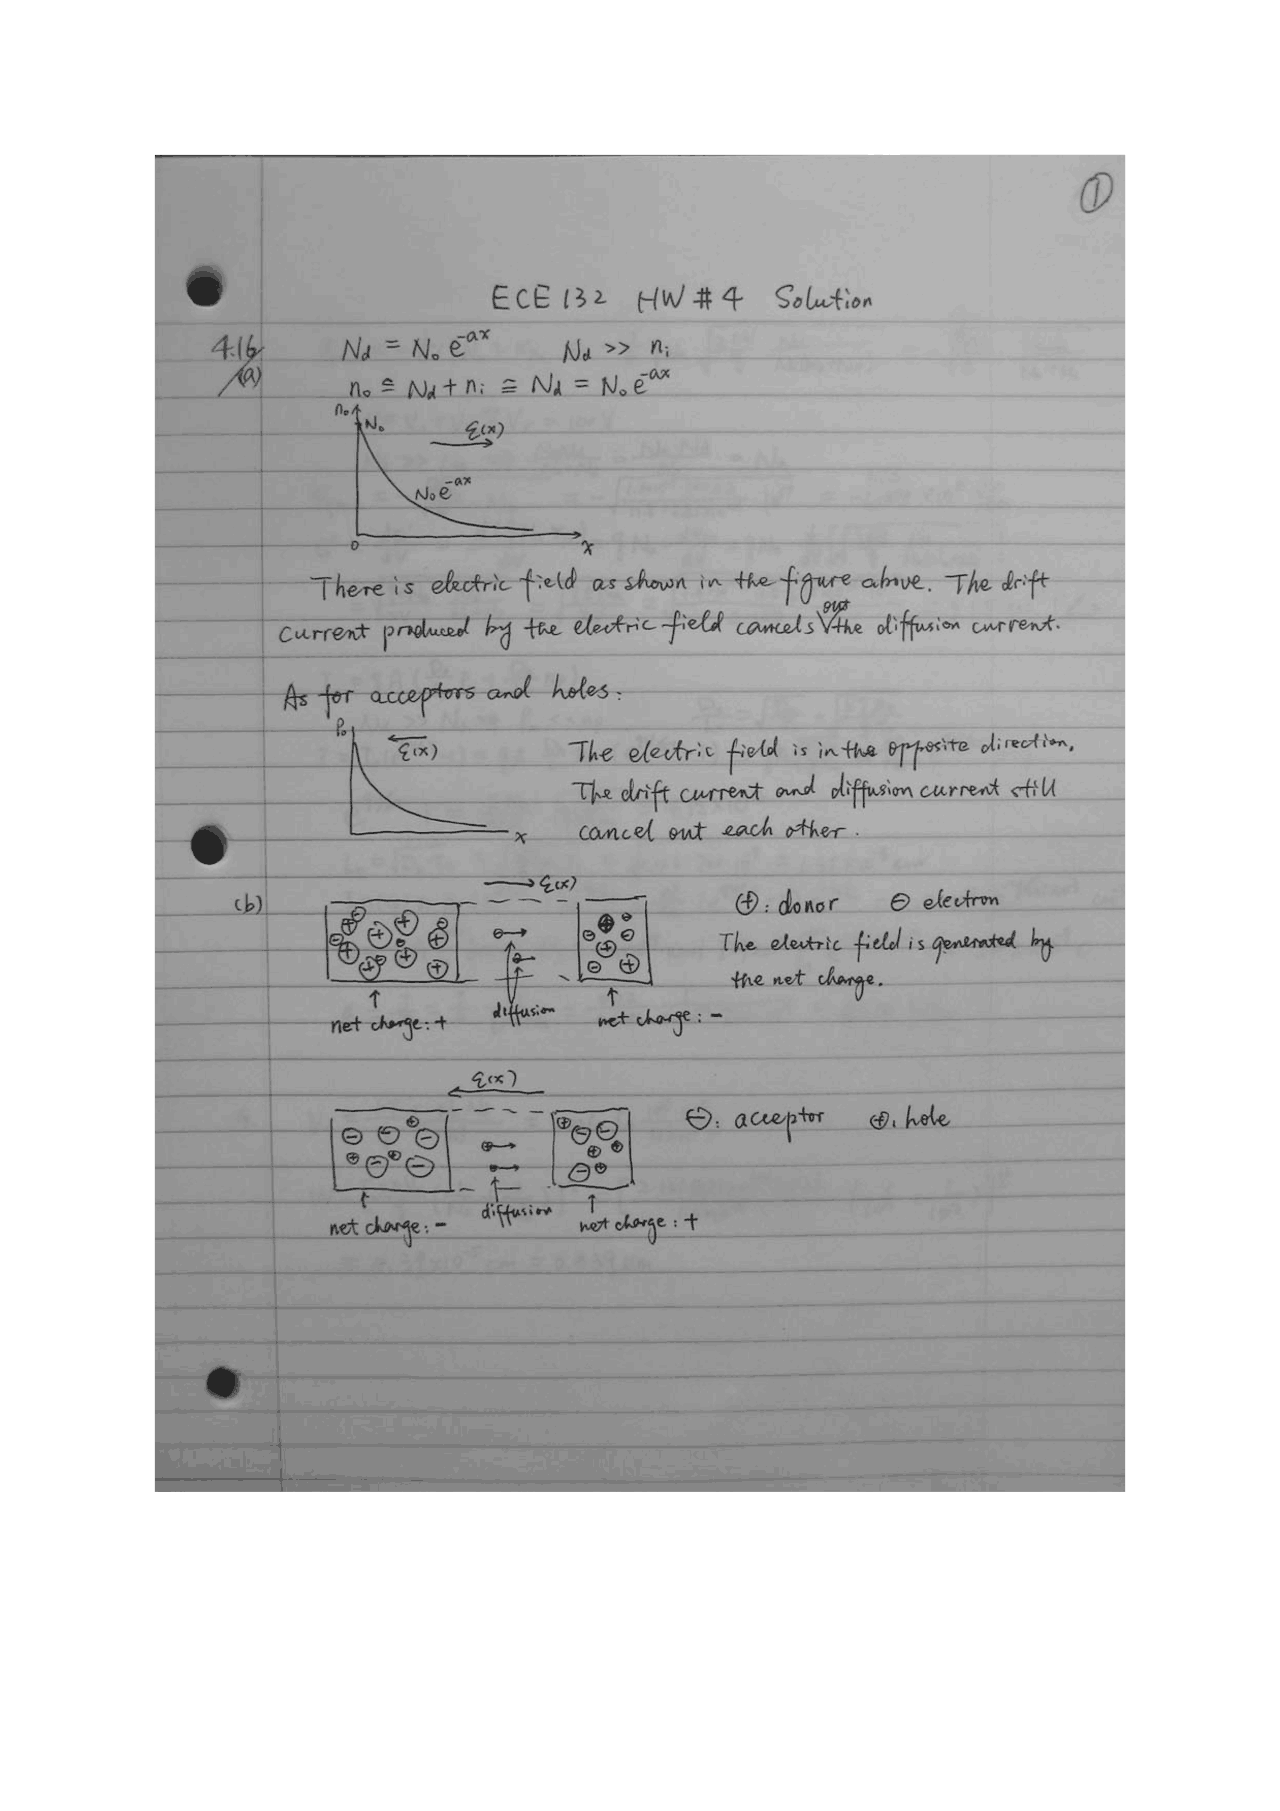 ①
ECE 132 HW # 4 Solution
4.16 Nd = N₀ e^-ax Nd >> ni
(a) n₀ ≅ Nd + ni ≅ Nd = N₀ e^-ax
n₀
N₀ ℰ(x)
N₀e^-ax
0 x
There is electric field as shown in the figure above. The drift
current produced by the electric field cancels out the diffusion current.
As for acceptors and holes:
P₀
ℰ(x) The electric field is in the opposite direction.
The drift current and diffusion current still
x cancel out each other.
ℰ(x)
(b) ⊕: donor ⊖ electron
The electric field is generated by
the net charge.
diffusion
net charge: + net charge: −
ℰ(x)
⊖: acceptor ⊕: hole
diffusion
net charge: − net charge: +